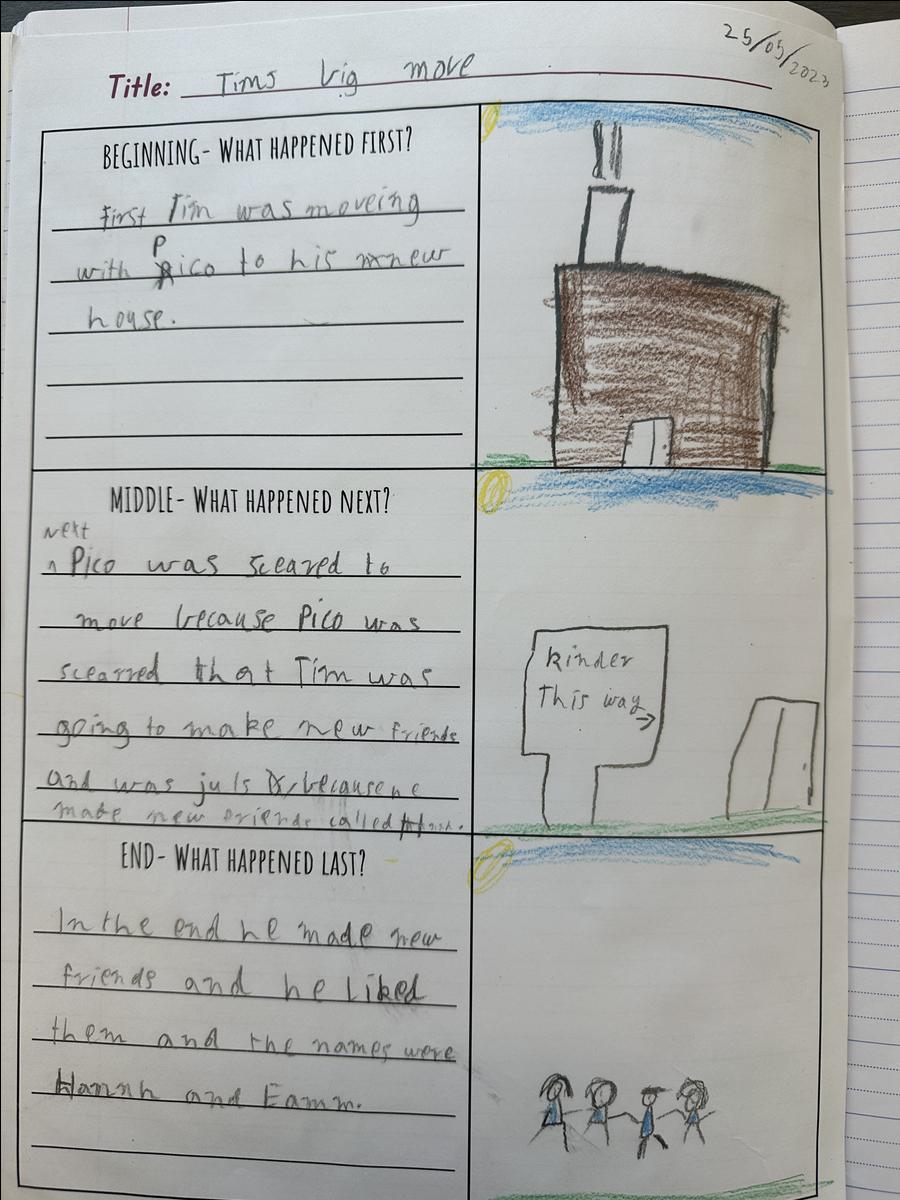 25/05/2023
Title: Tims big move
BEGINNING- WHAT HAPPENED FIRST?
First Tim was moveing
with Pico to his new
house.
MIDDLE- WHAT HAPPENED NEXT?
Next
^ Pico was sceared to
move because Pico was
scearred that Tim was
going to make new friends
and was juls because he
made new friends called
kinder
This way
→
END- WHAT HAPPENED LAST?
In the end he made new
friends and he liked
them and the names were
Hannh and Eamm.